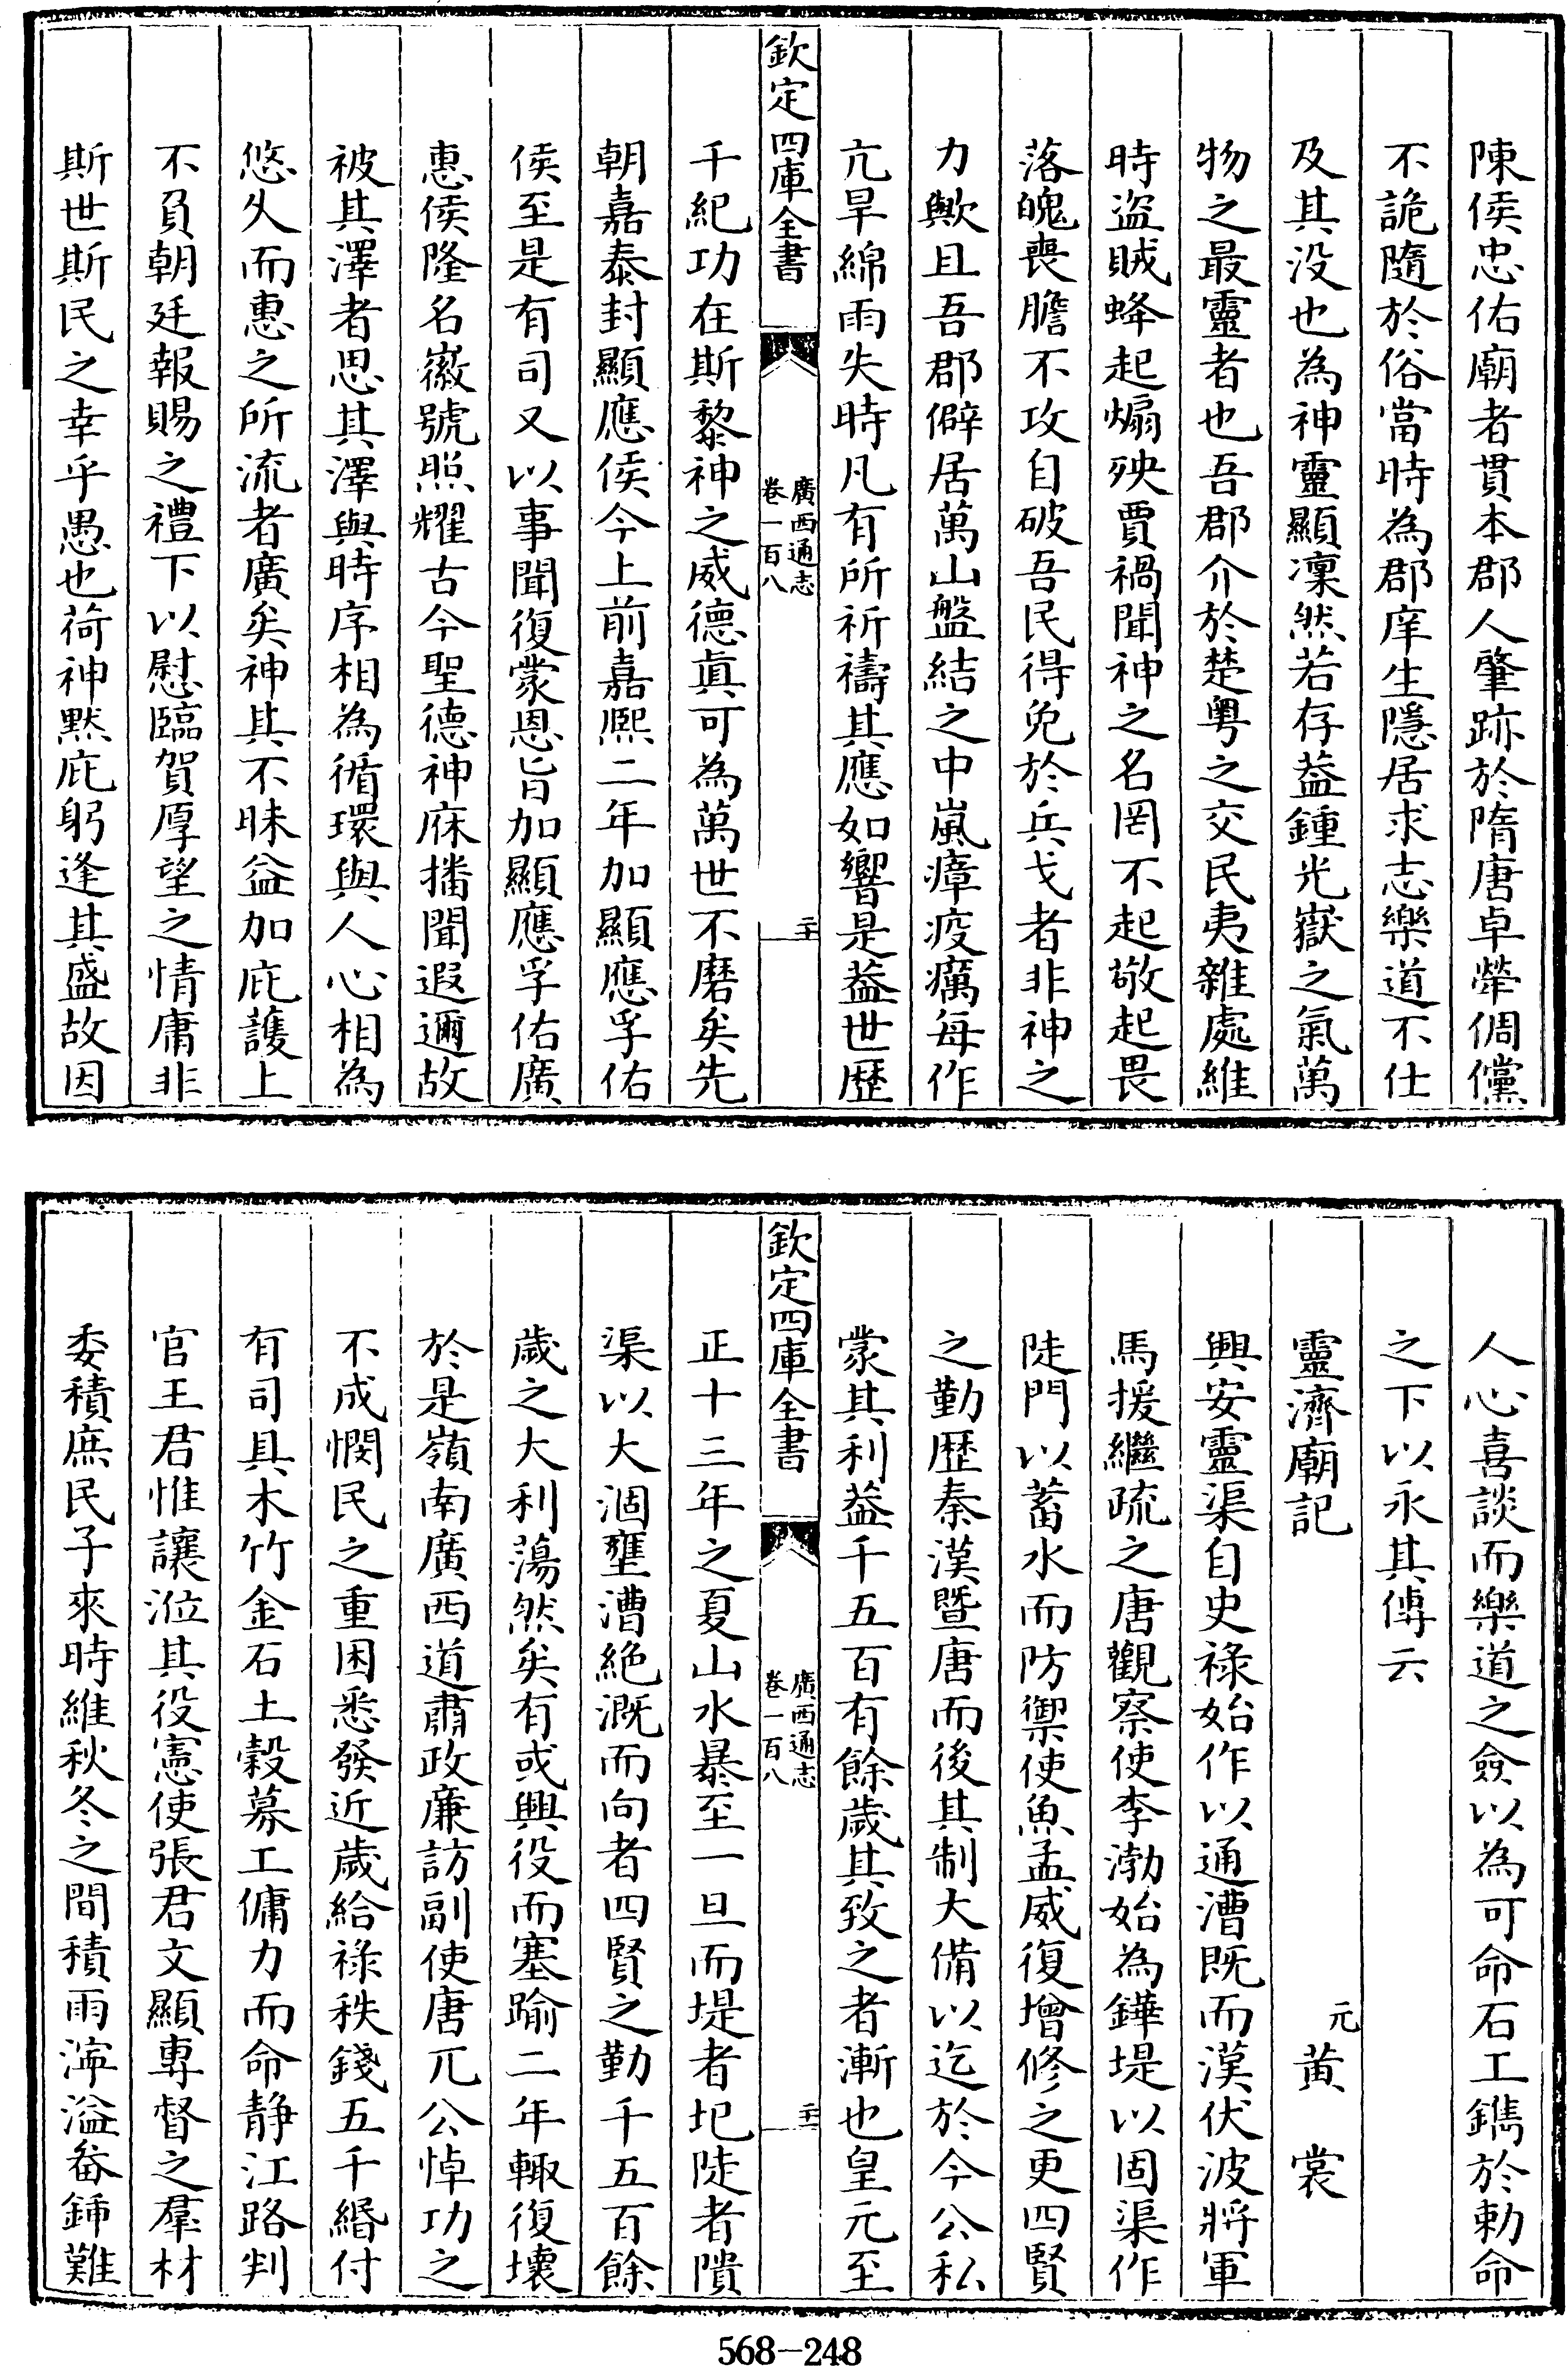 陳侯忠佑廟者貫本郡人肇跡於隋唐卓犖倜儻
不詭隨於俗當時為郡庠生隱居求志樂道不仕
及其没也為神靈顯凜然若存葢鍾光嶽之氣萬
物之最靈者也吾郡介於楚粤之交民夷雜處維
時盜賊蜂起煽殃賈禍聞神之名罔不起敬起畏
落魄喪膽不攻自破吾民得免於兵戈者非神之
力歟且吾郡僻居萬山盤結之中嵐瘴疫癘每作
亢旱綿雨失時凡有所祈禱其應如響是葢世歴
欽定四庫全書
廣西通志
卷一百八
二十
千紀功在斯黎神之威德眞可為萬世不磨矣先
朝嘉泰封顯應侯今上前嘉熈二年加顯應孚佑
侯至是有司又以事聞復蒙恩旨加顯應孚佑廣
惠侯隆名徽號照耀古今聖德神庥播聞遐邇故
被其澤者思其澤與時序相為循環與人心相為
悠久而惠之所流者廣矣神其不昧益加庇護上
不負朝廷報賜之禮下以慰臨賀厚望之情庸非
斯世斯民之幸乎愚也荷神黙庇躬逢其盛故因
人心喜談而樂道之僉以為可命石工鐫於勅命
之下以永其傳云
靈濟廟記
元黄裳
興安靈渠自史祿始作以通漕既而漢伏波將軍
馬援繼疏之唐觀察使李渤始為鏵堤以固渠作
陡門以蓄水而防禦使魚孟威復增修之更四賢
之勤歴秦漢暨唐而後其制大備以迄於今公私
蒙其利葢千五百有餘歲其致之者漸也皇元至
欽定四庫全書
廣西通志
卷一百八
二十一
正十三年之夏山水暴至一旦而堤者圮陡者隤
渠以大涸壅漕絶溉而向者四賢之勤千五百餘
歲之大利蕩然矣有或興役而塞踰二年輙復壊
於是嶺南廣西道肅政亷訪副使唐兀公悼功之
不成憫民之重困悉發近歲給祿秩錢五千緡付
有司具木竹金石土穀募工傭力而命静江路判
官王君惟讓涖其役憲使張君文顯專督之羣材
委積庶民子來時維秋冬之間積雨濘溢畚鍤難
568-248